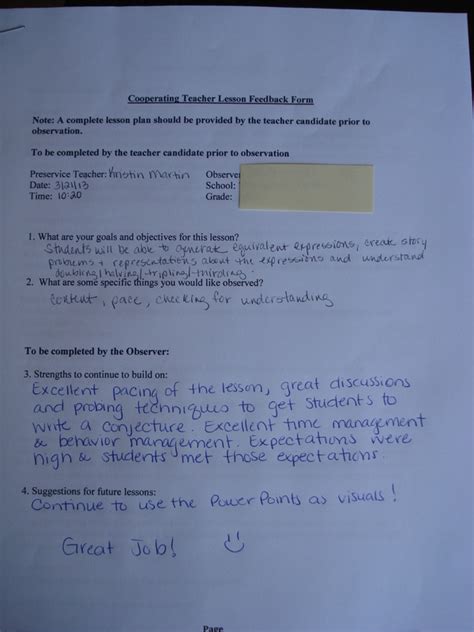 Cooperating Teacher Lesson Feedback Form
Note: A complete lesson plan should be provided by the teacher candidate prior to
observation.
To be completed by the teacher candidate prior to observation
Preservice Teacher: Kristin Martin Observer
Date: 3/21/13 School:
Time: 10:20 Grade:
1. What are your goals and objectives for this lesson?
Students will be able to generate equivalent expressions, create story
problems + representations about the expressions and understand
doubling/halving/-tripling/-thirding.
2. What are some specific things you would like observed?
Content, pace, checking for understanding
To be completed by the Observer:
3. Strengths to continue to build on:
Excellent pacing of the lesson, great discussions
and probing techniques to get students to
write a conjecture. Excellent time management
& behavior management. Expectations were
high & students met those expectations.
4. Suggestions for future lessons:
Continue to use the PowerPoints as visuals!
Great Job!
Page